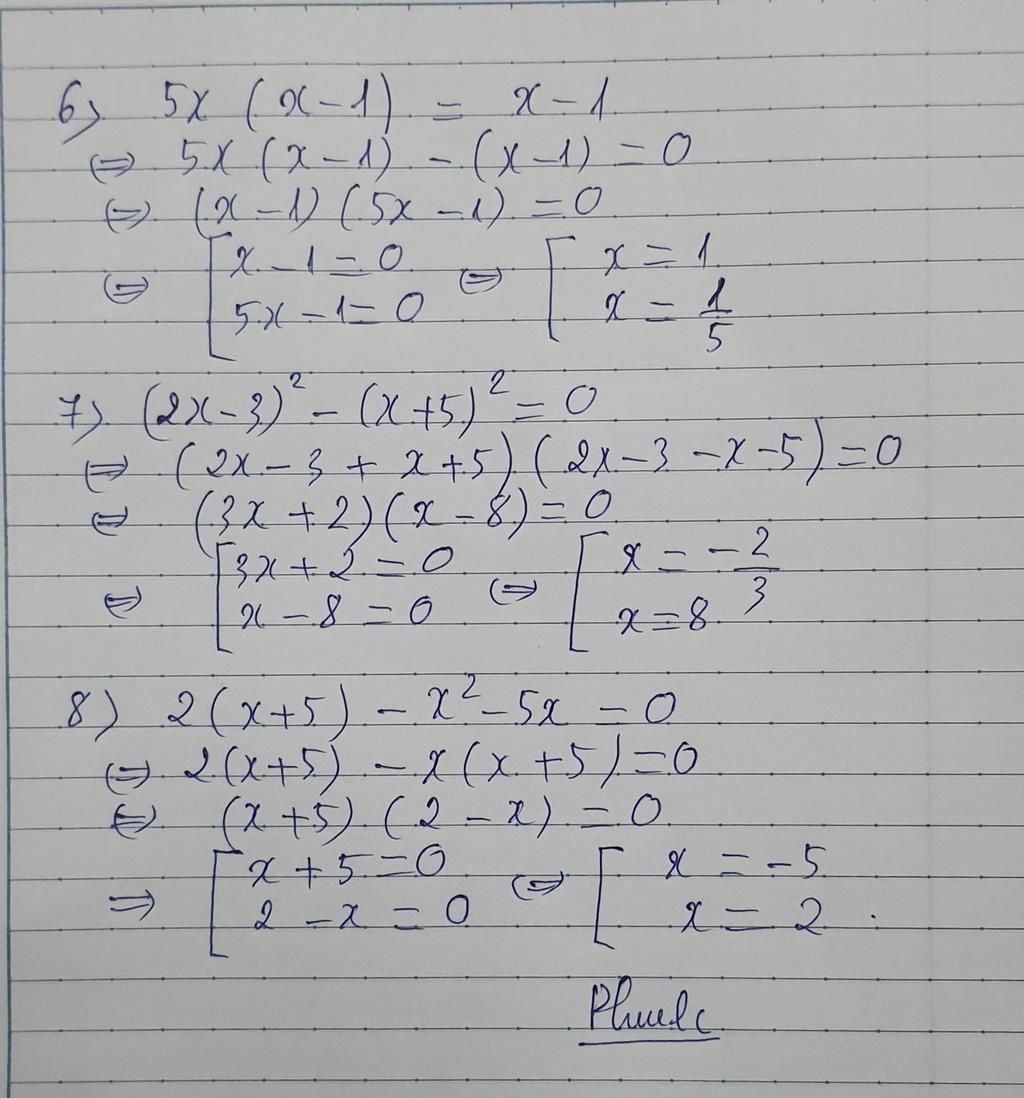 6) 5x (x-1) = x-1
⇔ 5x (x-1) - (x-1) = 0
⇔ (x-1) (5x-1) = 0
⇔ [ x-1=0 ⇔ [ x=1
5x-1=0 x = 1/5
7) (2x-3)² - (x+5)² = 0
⇔ (2x-3+x+5) (2x-3-x-5) = 0
⇔ (3x+2)(x-8) = 0
⇔ [ 3x+2=0 ⇔ [ x = -2/3
x-8=0 x=8
8) 2(x+5) - x² - 5x = 0
⇔ 2(x+5) - x(x+5) = 0
⇔ (x+5) (2-x) = 0
⇒ [ x+5=0 ⇔ [ x = -5
2-x=0 x = 2 .